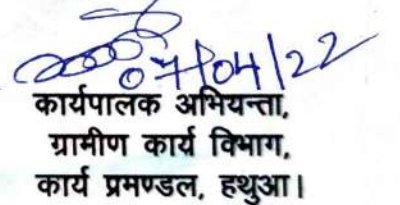 07/04/22
कार्यपालक अभियन्ता,
ग्रामीण कार्य विभाग,
कार्य प्रमण्डल, हथुआ।